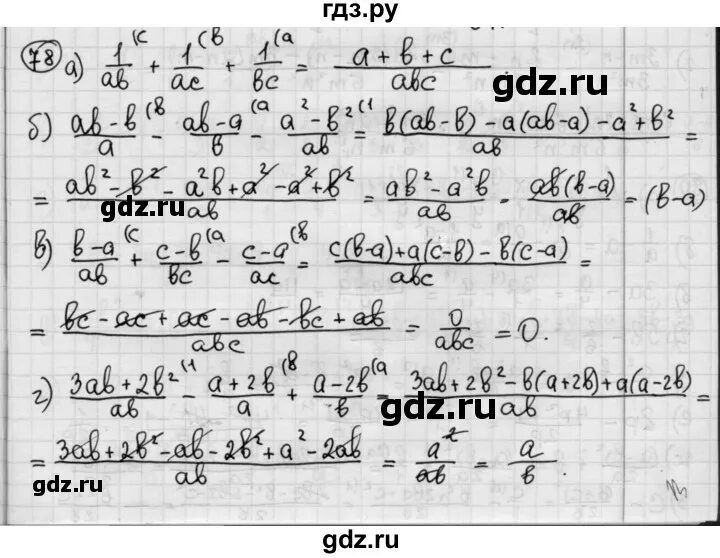 гдз.ру
78 а) 1/ab (c + 1/ac (b + 1/bc (a = (a + b + c)/abc
gdz.ru
б) (ab - b)/a (b - (ab - a)/b (a - (a² - b²)/ab (1 = (b(ab - b) - a(ab - a) - a² + b²)/ab =
= (ab² - b² - a²b + a² - a² + b²)/ab = (ab² - a²b)/ab - ab(b - a)/ab = (b - a)
gdz.ru
в) (b - a)/ab (c + (c - b)/bc (a - (c - a)/ac (b = (c(b - a) + a(c - b) - b(c - a))/abc =
= (bc - ac + ac - ab - bc + ab)/abc = 0/abc = 0.
г) (3ab + 2b²)/ab (1 - (a + 2b)/a (b + (a - 2b)/b (a = (3ab + 2b² - b(a + 2b) + a(a - 2b))/ab =
gdz.ru
= (3ab + 2b² - ab - 2b² + a² - 2ab)/ab = a²/ab = a/b.
gdz.ru
gdz.ru